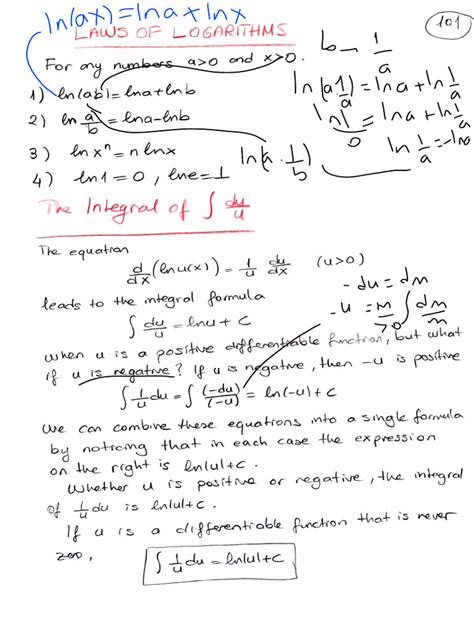 ln(ax)=lna+lnx
101
LAWS OF LOGARITHMS
For any numbers a>0 and x>0.
b = 1/a
1) ln(ab)=lna+lnb
ln(a 1/a) = lna + ln 1/a
2) ln a/b = lna-lnb
ln1 = lna + ln 1/a
0
3) ln xⁿ = n lnx
ln(a. 1/b)
ln 1/a = -lna
4) ln1=0, lne=1
The Integral of ∫ du/u
The equation
d/dx (ln u(x)) = 1/u du/dx (u>0)
-du = dm
leads to the integral formula
-u = m ∫ dm/m
>0
∫ du/u = lnu + c
when u is a positive differentiable function, but what
if u is negative? If u is negative, then -u is positive
∫ 1/u du = ∫ (-du)/(-u) = ln(-u)+c
We can combine these equations into a single formula
by noticing that in each case the expression
on the right is ln|u|+c.
Whether u is positive or negative, the integral
of 1/u du is ln|u|+c.
If u is a differentiable function that is never
zero,
∫ 1/u du = ln|u|+c